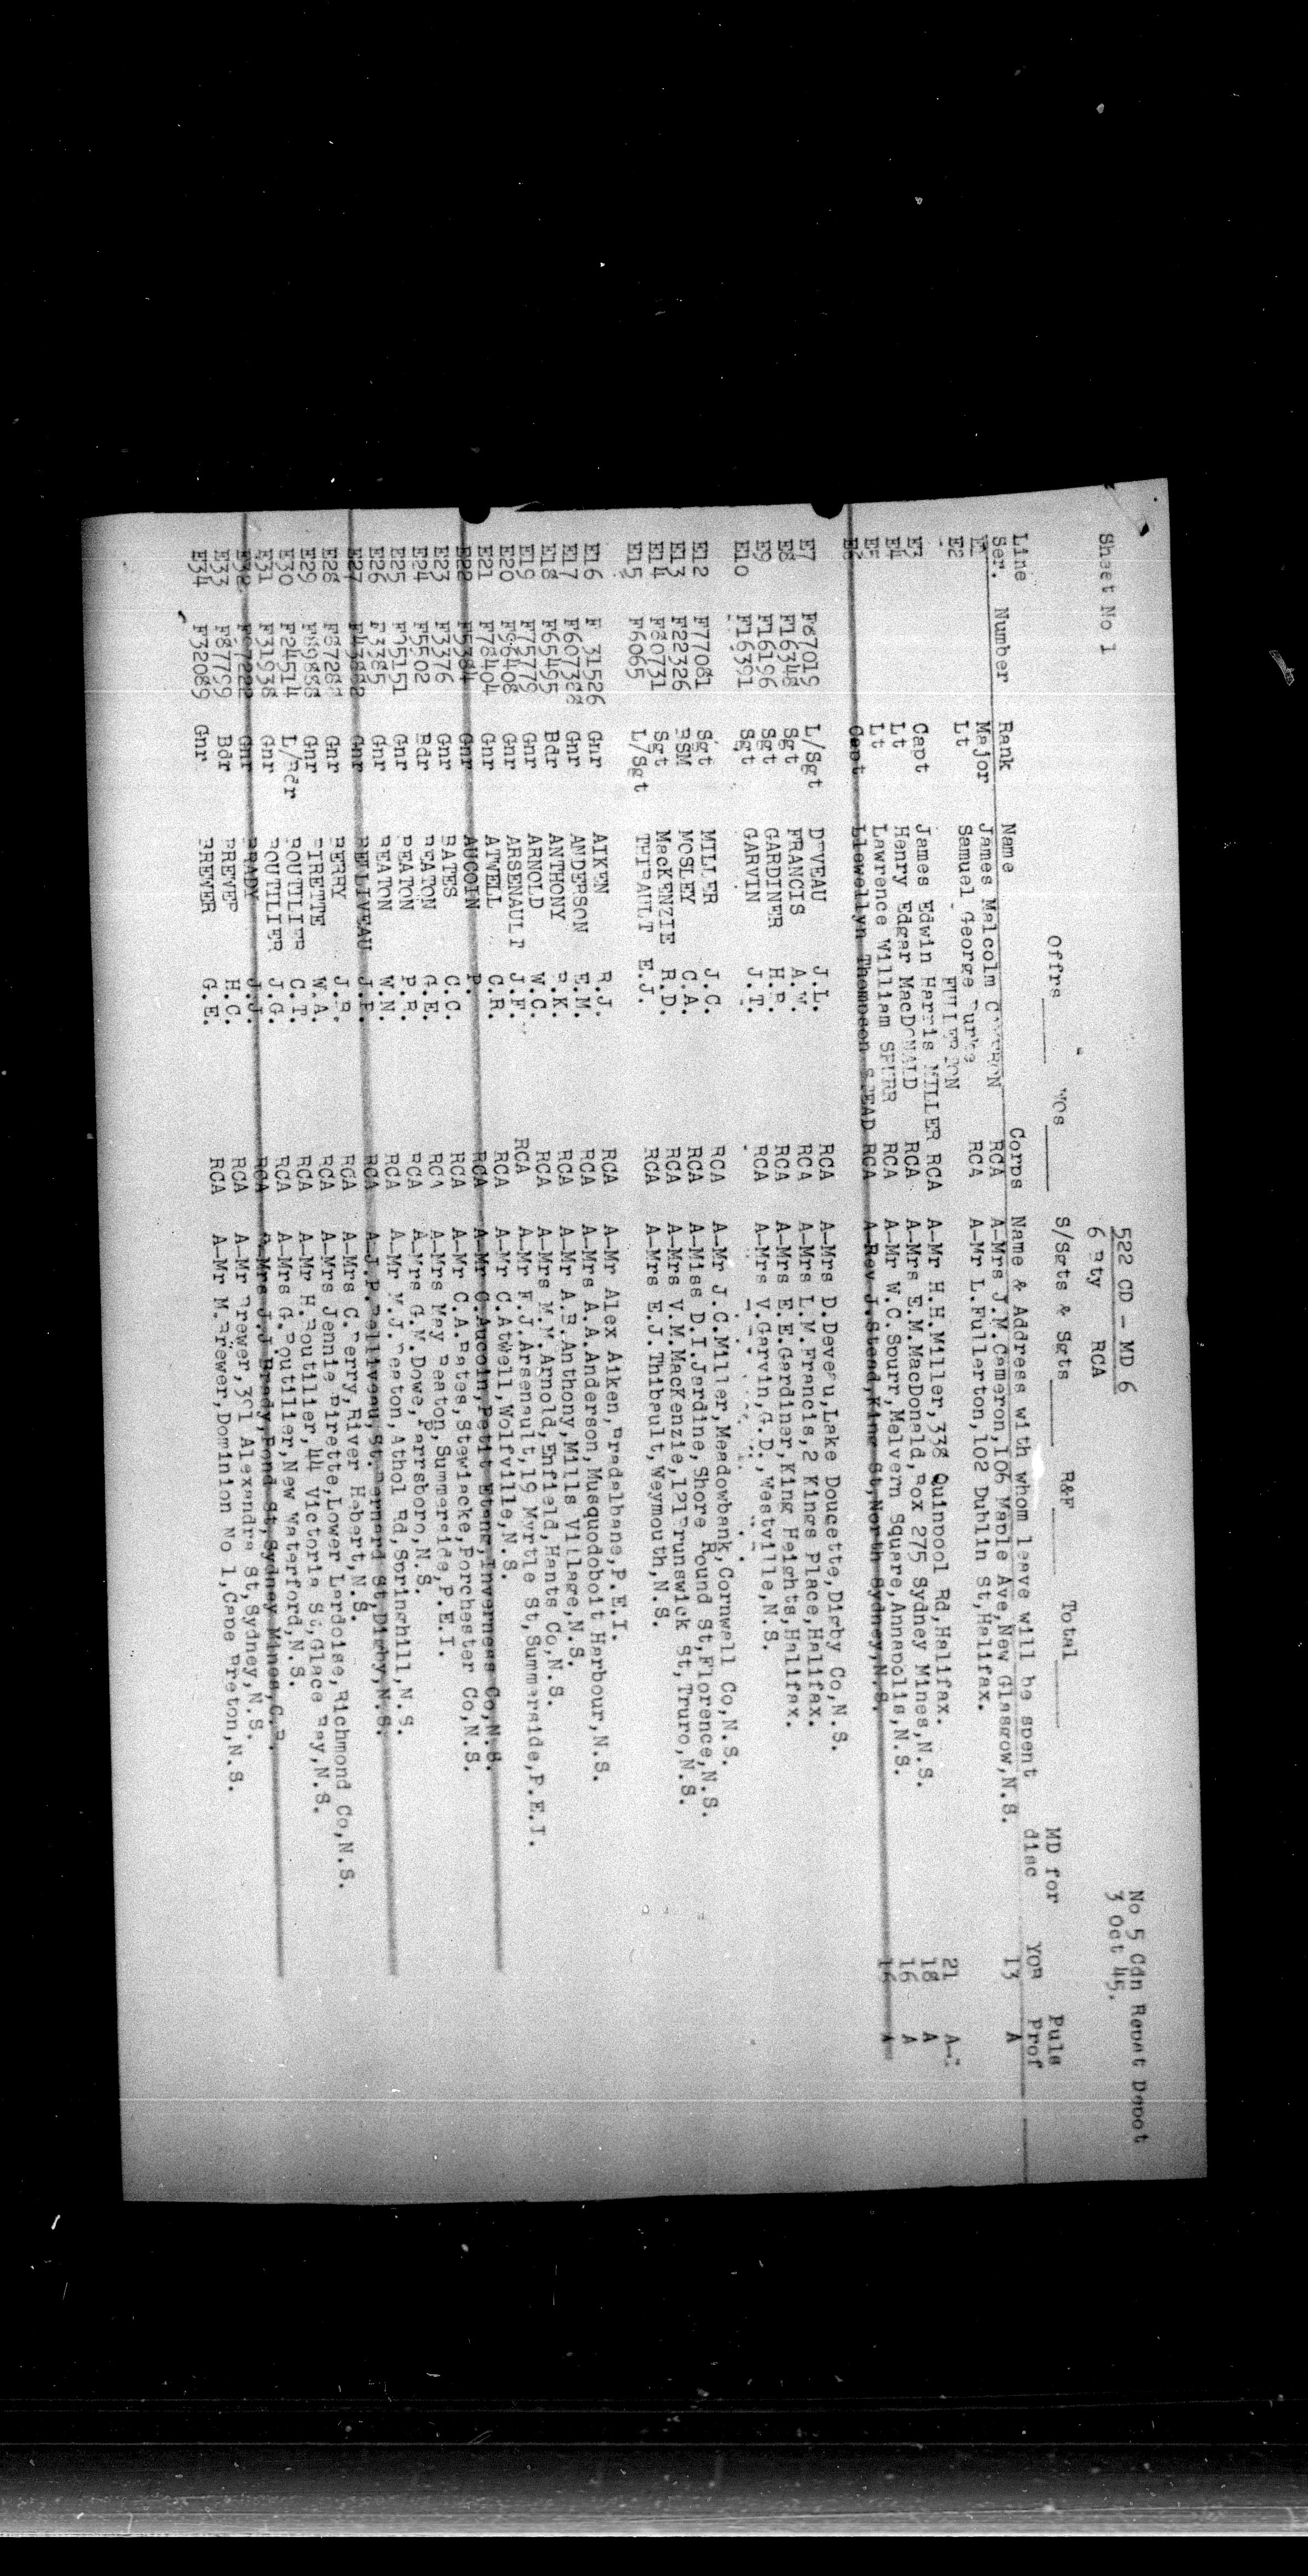 Sheet No 1
522 CD - MD 6
6 Bty RCA
No 5 Cdn Repat Depot
3 Oct 45.
Offrs WOs S/Sgts & Sgts R&F Total
Line MD for Puls
Ser. Number Rank Name Corps Name & Address with whom leave will be spent disc YOB Prof
E1 Major James Malcolm CAMERON RCA A-Mrs J.M.Cameron,106 Maple Ave,New Glasgow,N.S. 13 A
E2 Lt Samuel George Burke FULLERTON RCA A-Mr L.Fullerton,102 Dublin St,Halifax. 21 A
E3 Capt James Edwin Harris MILLER RCA A-Mr H.H.Miller,338 Quinpool Rd,Halifax. 18 A
E4 Lt Henry Edgar MacDONALD RCA A-Mrs E.M.MacDonald,Box 275 Sydney Mines,N.S. 16 A
E5 Lt Lawrence William SPURR RCA A-Mr W.C.Spurr,Melvern Square,Annapolis,N.S.
E6 Capt Llewellyn Thompson STEAD RCA A-Rev J.Stead,King St,North Sydney,N.S. 16 A
E7 F87019 L/Sgt DEVEAU J.L. RCA A-Mrs D.Deveau,Lake Doucette,Digby Co,N.S.
E8 F16348 Sgt FRANCIS A.W. RCA A-Mrs L.M.Francis,2 Kings Place,Halifax.
E9 F16196 Sgt GARDINER H.B. RCA A-Mrs E.E.Gardiner,King Heights,Halifax.
E10 F16391 Sgt GARVIN J.T. RCA A-Mrs V.Garvin,G.D.,Westville,N.S.
E12 F77081 Sgt MILLER J.C. RCA A-Mr J.C.Miller,Meadowbank,Cornwall Co,N.S.
E13 F22326 BSM MOSLEY C.A. RCA A-Miss D.I.Jardine,Shore Round St,Florence,N.S.
E14 F80731 Sgt MacKENZIE R.D. RCA A-Mrs V.M.MacKenzie,121 Brunswick St,Truro,N.S.
E15 F6065 L/Sgt THIBAULT E.J. RCA A-Mrs E.J.Thibault,Weymouth,N.S.
E16 F 31526 Gnr AIKEN R.J. RCA A-Mr Alex Aiken,Bradalbane,P.E.I.
E17 F607388 Gnr ANDERSON E.M. RCA A-Mrs A.A.Anderson,Musquodoboit Harbour,N.S.
E18 F65495 Bdr ANTHONY B.K. RCA A-Mr A.B.Anthony,Mills Village,N.S.
E19 F75779 Gnr ARNOLD W.C. RCA A-Mrs M.M.Arnold,Enfield,Hants Co,N.S.
E20 F96408 Gnr ARSENAULT J.F. RCA A-Mr F.J.Arsenault,19 Myrtle St,Summerside,P.E.I.
E21 F78404 Gnr ATWELL C.R. RCA A-Mr C.Atwell,Wolfville,N.S.
E22 F5384 Gnr AUCOIN P. RCA A-Mr C.Aucoin,Petit Etang,Inverness Co,N.S.
E23 F3376 Gnr BATES C.C. RCA A-Mr C.A.Bates,Stewiacke,Porchester Co,N.S.
E24 F5502 Bdr BEATON G.E. RCA A-Mrs May Beaton,Summerside,P.E.I.
E25 F35151 Gnr BEATON P.R. RCA A-Mrs G.M.Dowe,Parrsboro,N.S.
E26 F3385 Gnr BEATON W.N. RCA A-Mr M.J.Beaton,Athol Rd,Springhill,N.S.
E27 Gnr BELLIVEAU J.F. RCA A-J.P.Belliveau,St.Bernard St,Digby,N.S.
E28 F87288 Gnr BERRY J.B. RCA A-Mrs C.Berry,River Hebert,N.S.
E29 F89888 Gnr BIRETTE W.A. RCA A-Mrs Jennie Birette,Lower Lardoise,Richmond Co,N.S.
E30 F24514 L/Bdr BOUTLIER C.T. RCA A-Mr H.Boutilier,44 Victoria St,Glace Bay,N.S.
E31 F31938 Gnr BOUTILIER J.G. RCA A-Mrs G.Boutilier,New Waterford,N.S.
E32 Gnr BRADY J.J. RCA A-Mrs J.J.Brady,Pond St,Sydney Mines,C.B.
E33 F87799 Bdr BREWER H.C. RCA A-Mr Brewer,391 Alexandra St,Sydney,N.S.
E34 F32089 Gnr BREWER G.E. RCA A-Mr M.Brewer,Dominion No 1,Cape Breton,N.S.